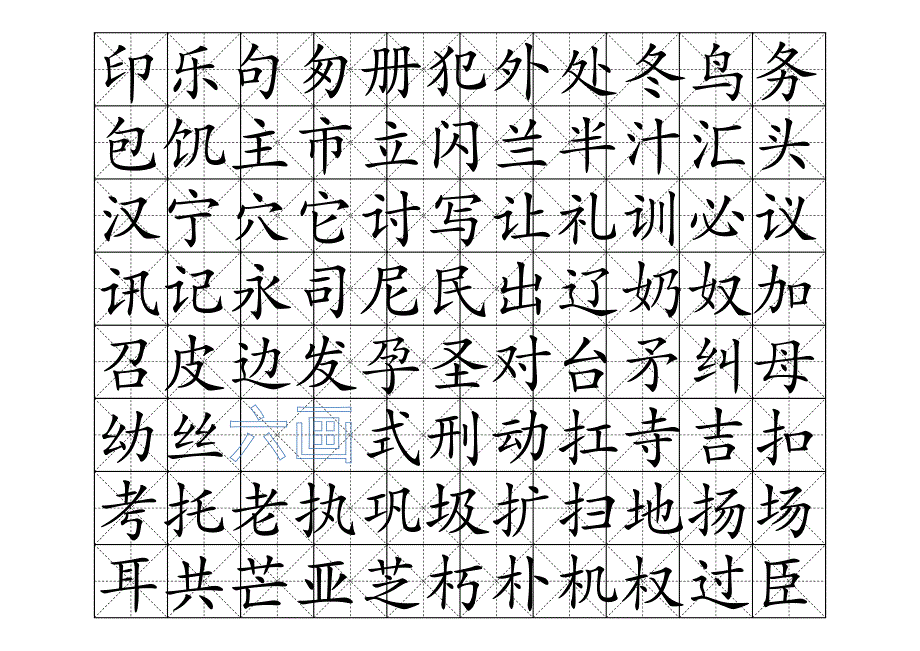 印乐句匆册犯外处冬鸟务
包饥主市立闪兰半汁汇头
汉宁穴它讨写让礼训必议
讯记永司尼民出辽奶奴加
召皮边发孕圣对台矛纠母
幼丝六画式刑动扛寺吉扣
考托老执巩圾扩扫地扬场
耳共芒亚芝朽朴机权过臣